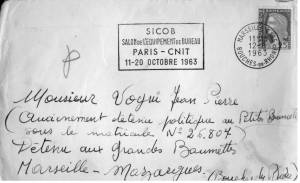 SICOB
SALON DE L'ÉQUIPEMENT DE BUREAU
PARIS - CNIT
11-20 OCTOBRE 1963
MARSEILLE
1963
BOUCHES-DU-RHONE
Monsieur Vogué Jean Pierre
(Anciennement détenu politique au Petites Baumettes
sous le matricule N° 26.807)
Détenu aux Grandes Baumettes
Marseille - Mazargues